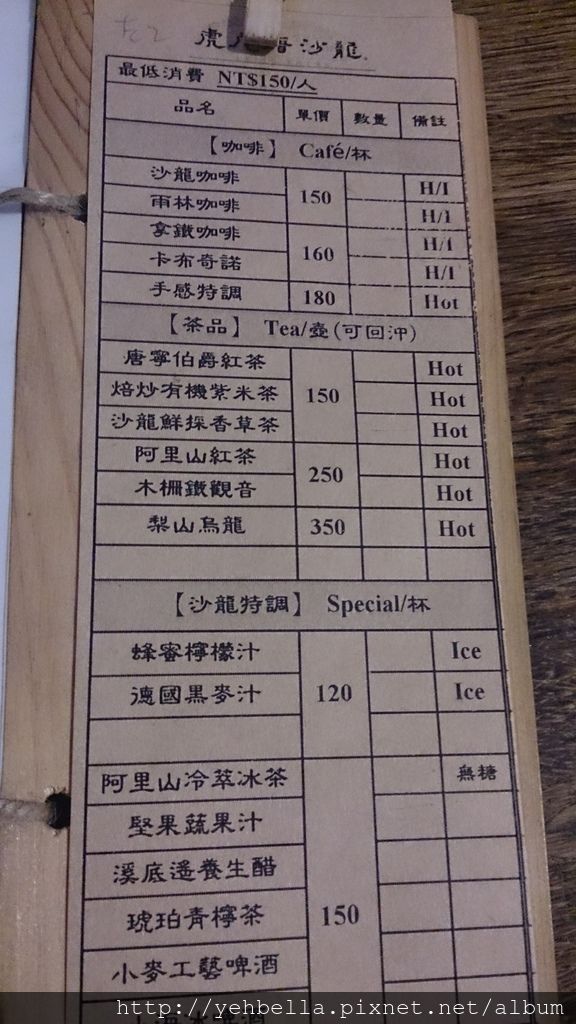 沙龍
最低消費 NT$150/人
品名 單價 數量 備註
【咖啡】 Café/杯
沙龍咖啡 150 H/I
雨林咖啡 H/I
拿鐵咖啡 160 H/I
卡布奇諾 H/I
手感特調 180 Hot
【茶品】 Tea/壺(可回沖)
唐寧伯爵紅茶 150 Hot
焙炒有機紫米茶 Hot
沙龍鮮採香草茶 Hot
阿里山紅茶 250 Hot
木柵鐵觀音 Hot
梨山烏龍 350 Hot
【沙龍特調】 Special/杯
蜂蜜檸檬汁 120 Ice
德國黑麥汁 Ice
阿里山冷萃冰茶 150 無糖
堅果蔬果汁
溪底遙養生醋
琥珀青檸茶
小麥工藝啤酒
http://yehbella.pixnet.net/album